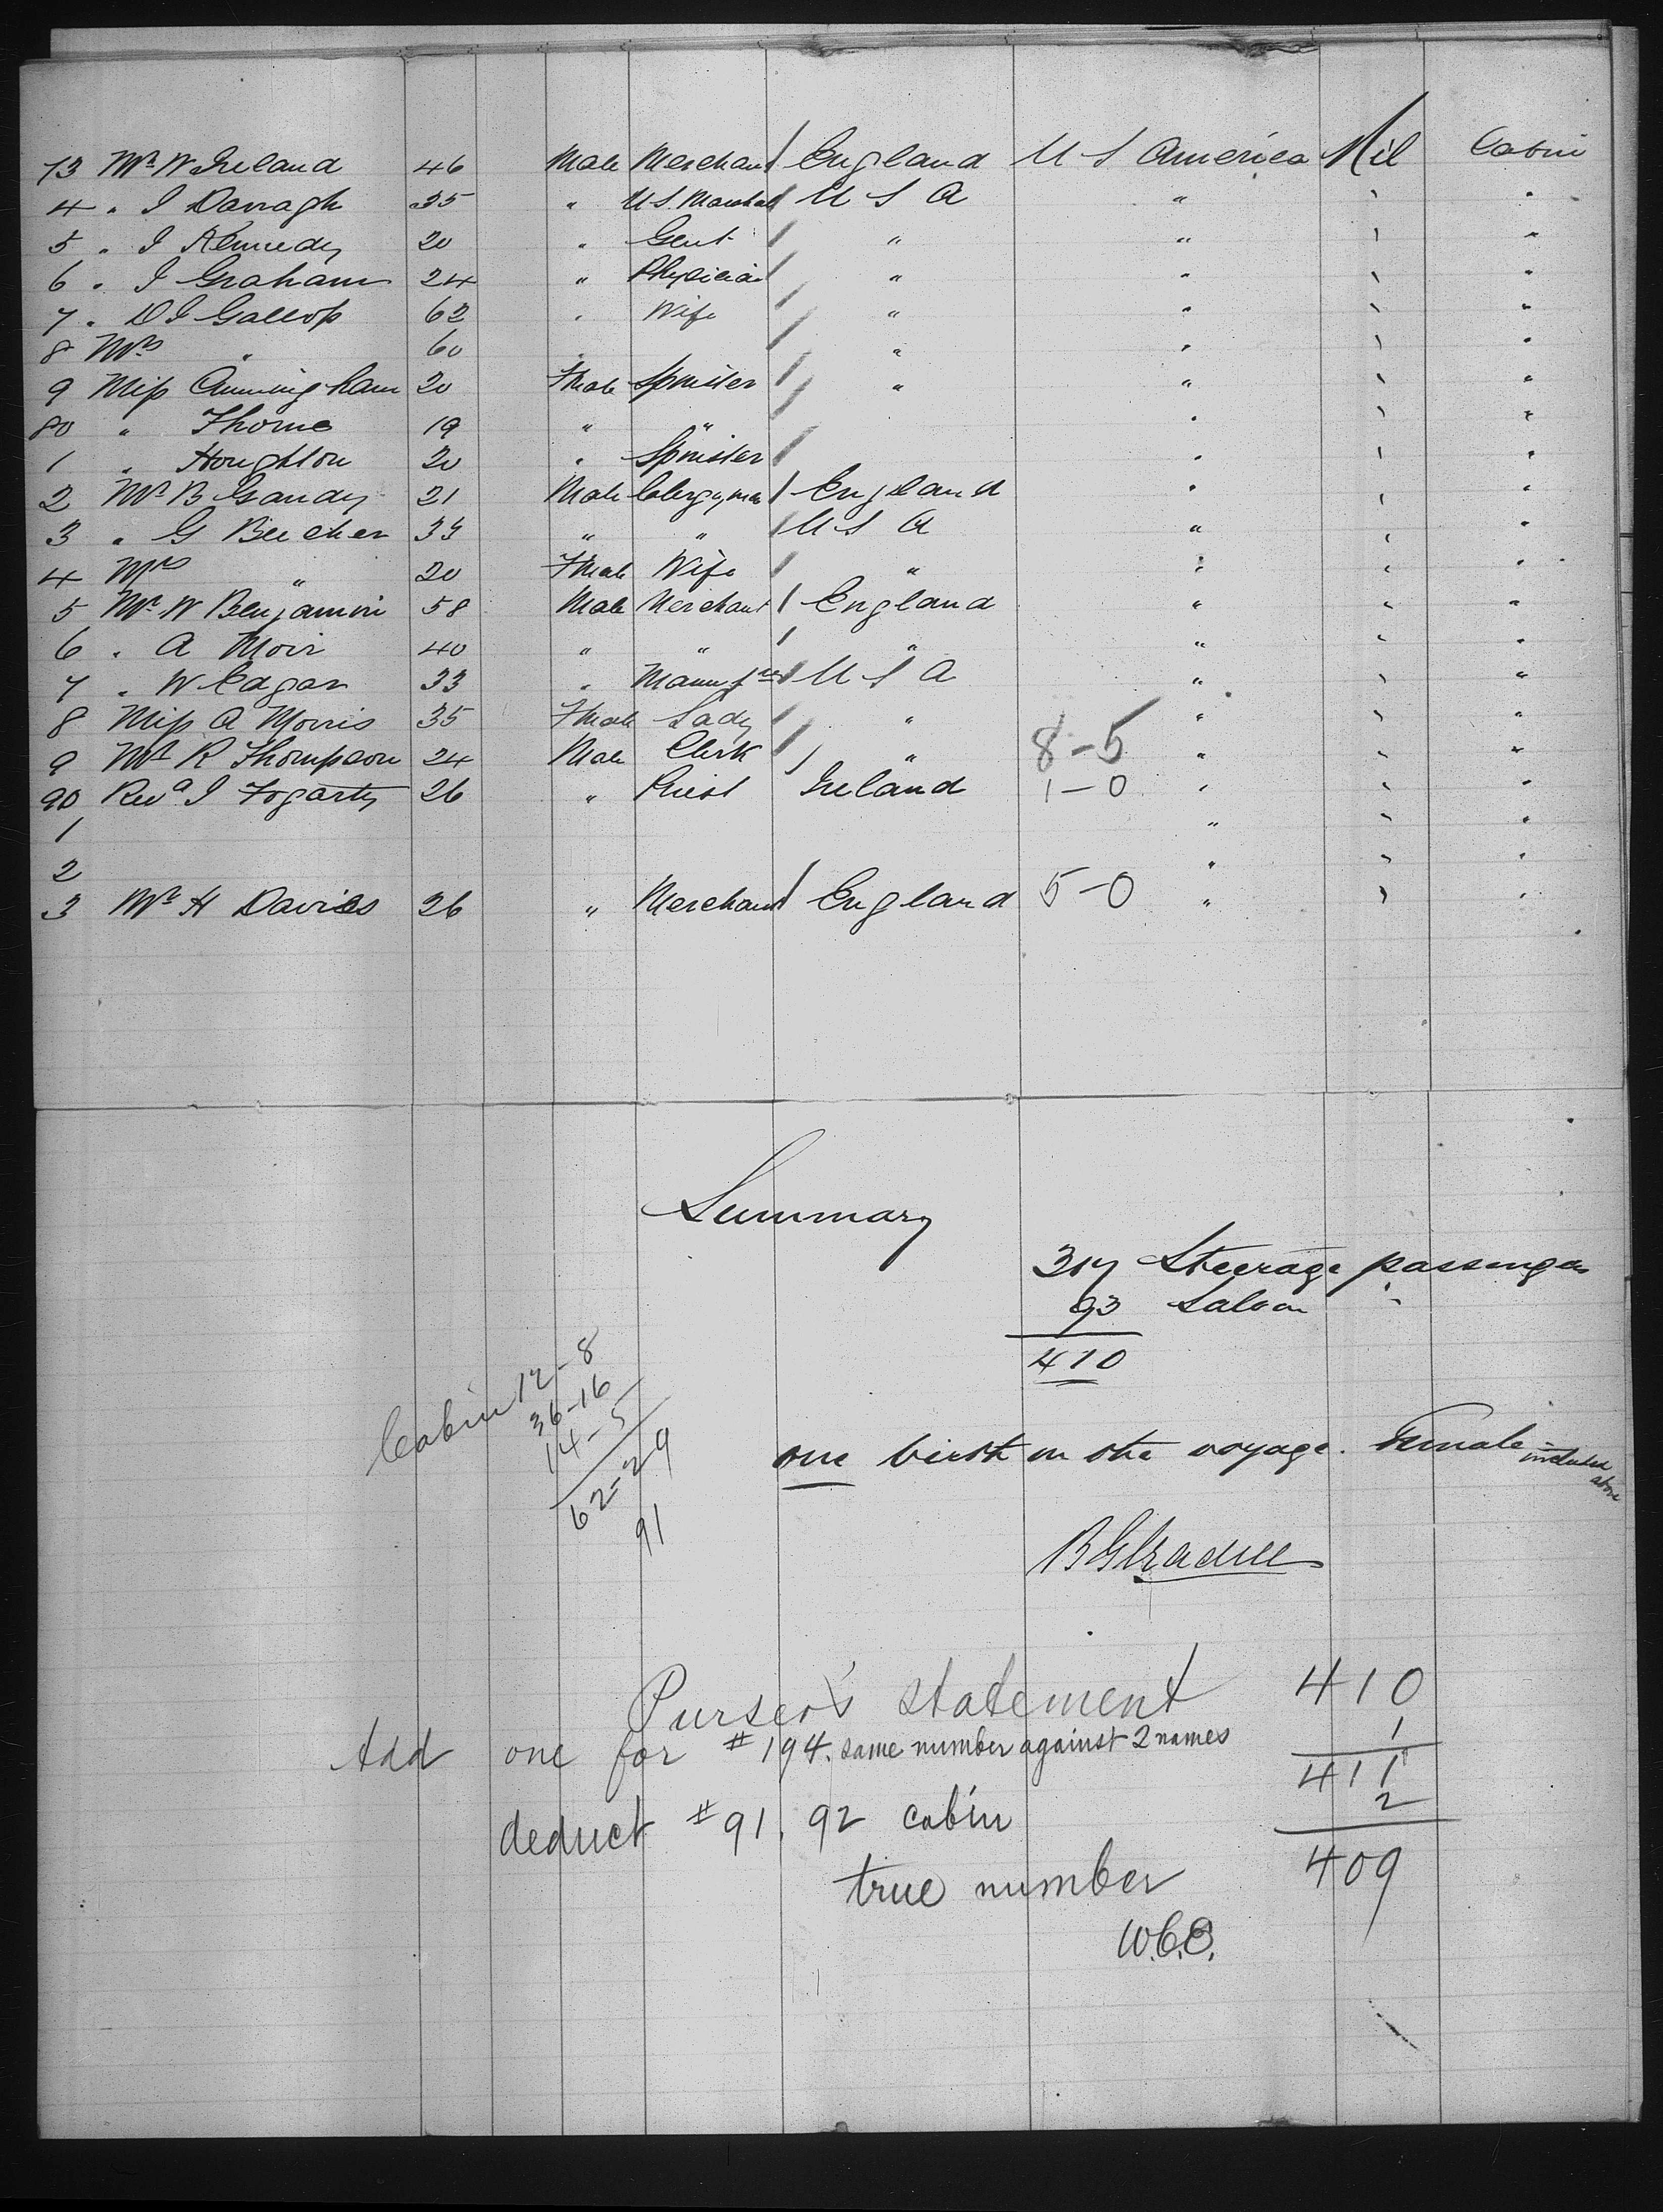 73 Mr W Ireland 46 Male Merchant England U S America Nil Cabin
4 " I Darragh 35 " U.S. Marshal U S A " " "
5 " I Kennedy 20 " Gent " " " "
6 " I Graham 24 " Physician " " " "
7 " D I Gallop 62 " Wife " " " "
8 Mrs " 60 " " " " "
9 Miss Cunningham 20 Fmale Spinster " " " "
80 " Thorne 19 " " " " "
1 " Houghton 20 " Spinster " " "
2 Mr B Gandy 21 Male Clergyman England " " "
3 " G Beecher 33 " " U S A " " "
4 Mrs " 20 Fmale Wife " " " "
5 Mr W Benjamin 58 Male Merchant England " " "
6 " A Moir 40 " " " " " "
7 " W Eagar 33 " Manufrer U S A " " "
8 Miss A Morris 35 Fmale Lady " " " "
9 Mr R Thompson 24 Male Clerk " 8-5 " " "
90 Revd I Fogarty 26 " Priest Ireland 1-0 " " "
1 " " "
2 " " "
3 Mr H Davies 26 " Merchant England 5-0 " " "
Summary
317 Steerage passenger
93 Saloon "
410
Cabin 12-8
36-16
14-5
62-29
91
one birth on the voyage. Female - included above
Purser's statement 410
Add one for #194. same number against 2 names 1
411
deduct #91, 92 cabin 2
true number 409
W.C.O.